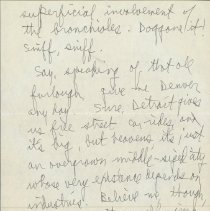 superficial involvement of
the bronchioles. Doggone it!
Sniff, sniff.
Say, speaking of that ole
furlough give me Denver
any day. Sure, Detroit gives
us free street car rides, and
its big, but heavens its just
an overgrown middle-sized city
whose very existence depends on
industries. Believe me though,